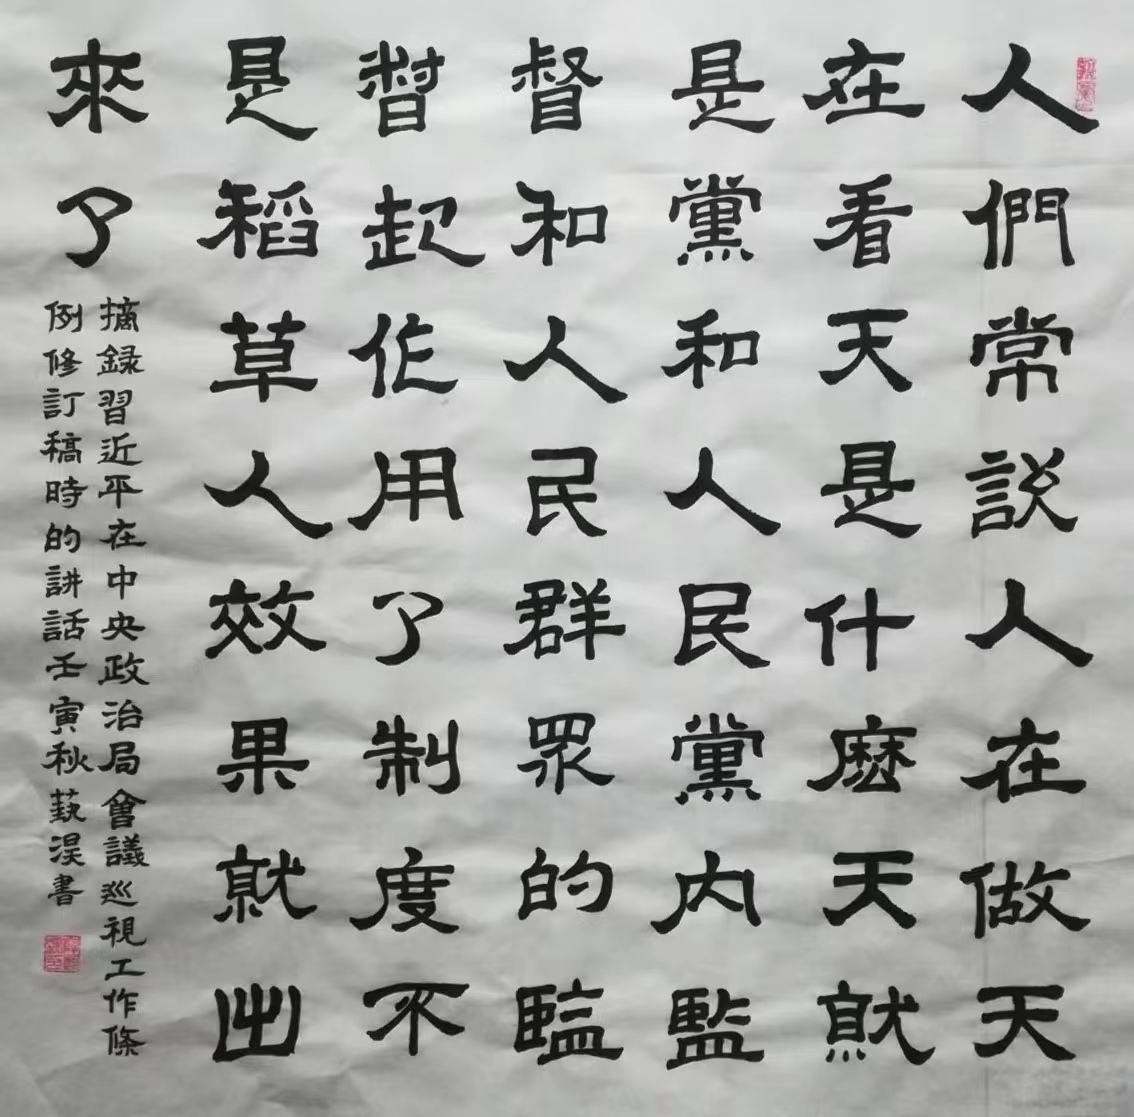 人們常說人在做天
在看天是什麽天就
是黨和人民黨內監
督和人民群眾的監
督起作用了制度不
是稻草人效果就出
來了
摘録習近平在中央政治局會議巡視工作條
例修訂稿時的講話壬寅秋蓺淏書